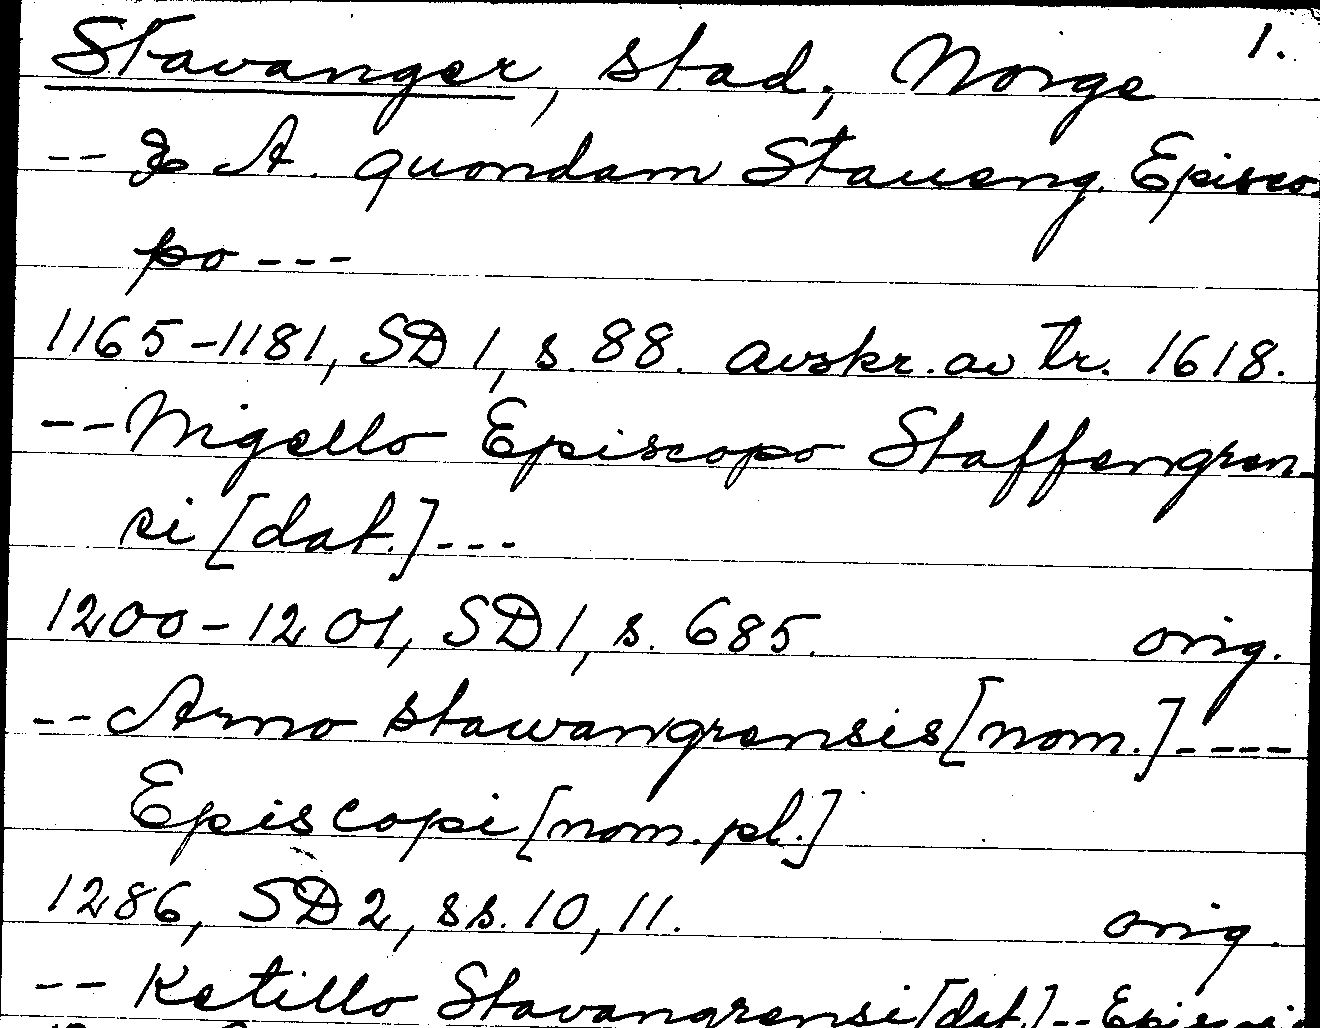 Stavanger, stad, Norge 1.
-- & A. quondam Staueng. Episco-
po ---
1165-1181, SD 1, s. 88. avskr. av tr. 1618.
-- Nigello Episcopo Staffengren-
si [dat.] ---
1200-1201, SD 1, s. 685. orig.
-- Arno stawangrensis [nom.] ----
Episcopi [nom. pl.]
1286, SD 2, ss. 10, 11. orig.
-- Ketillo Stavangrensi [dat.] --